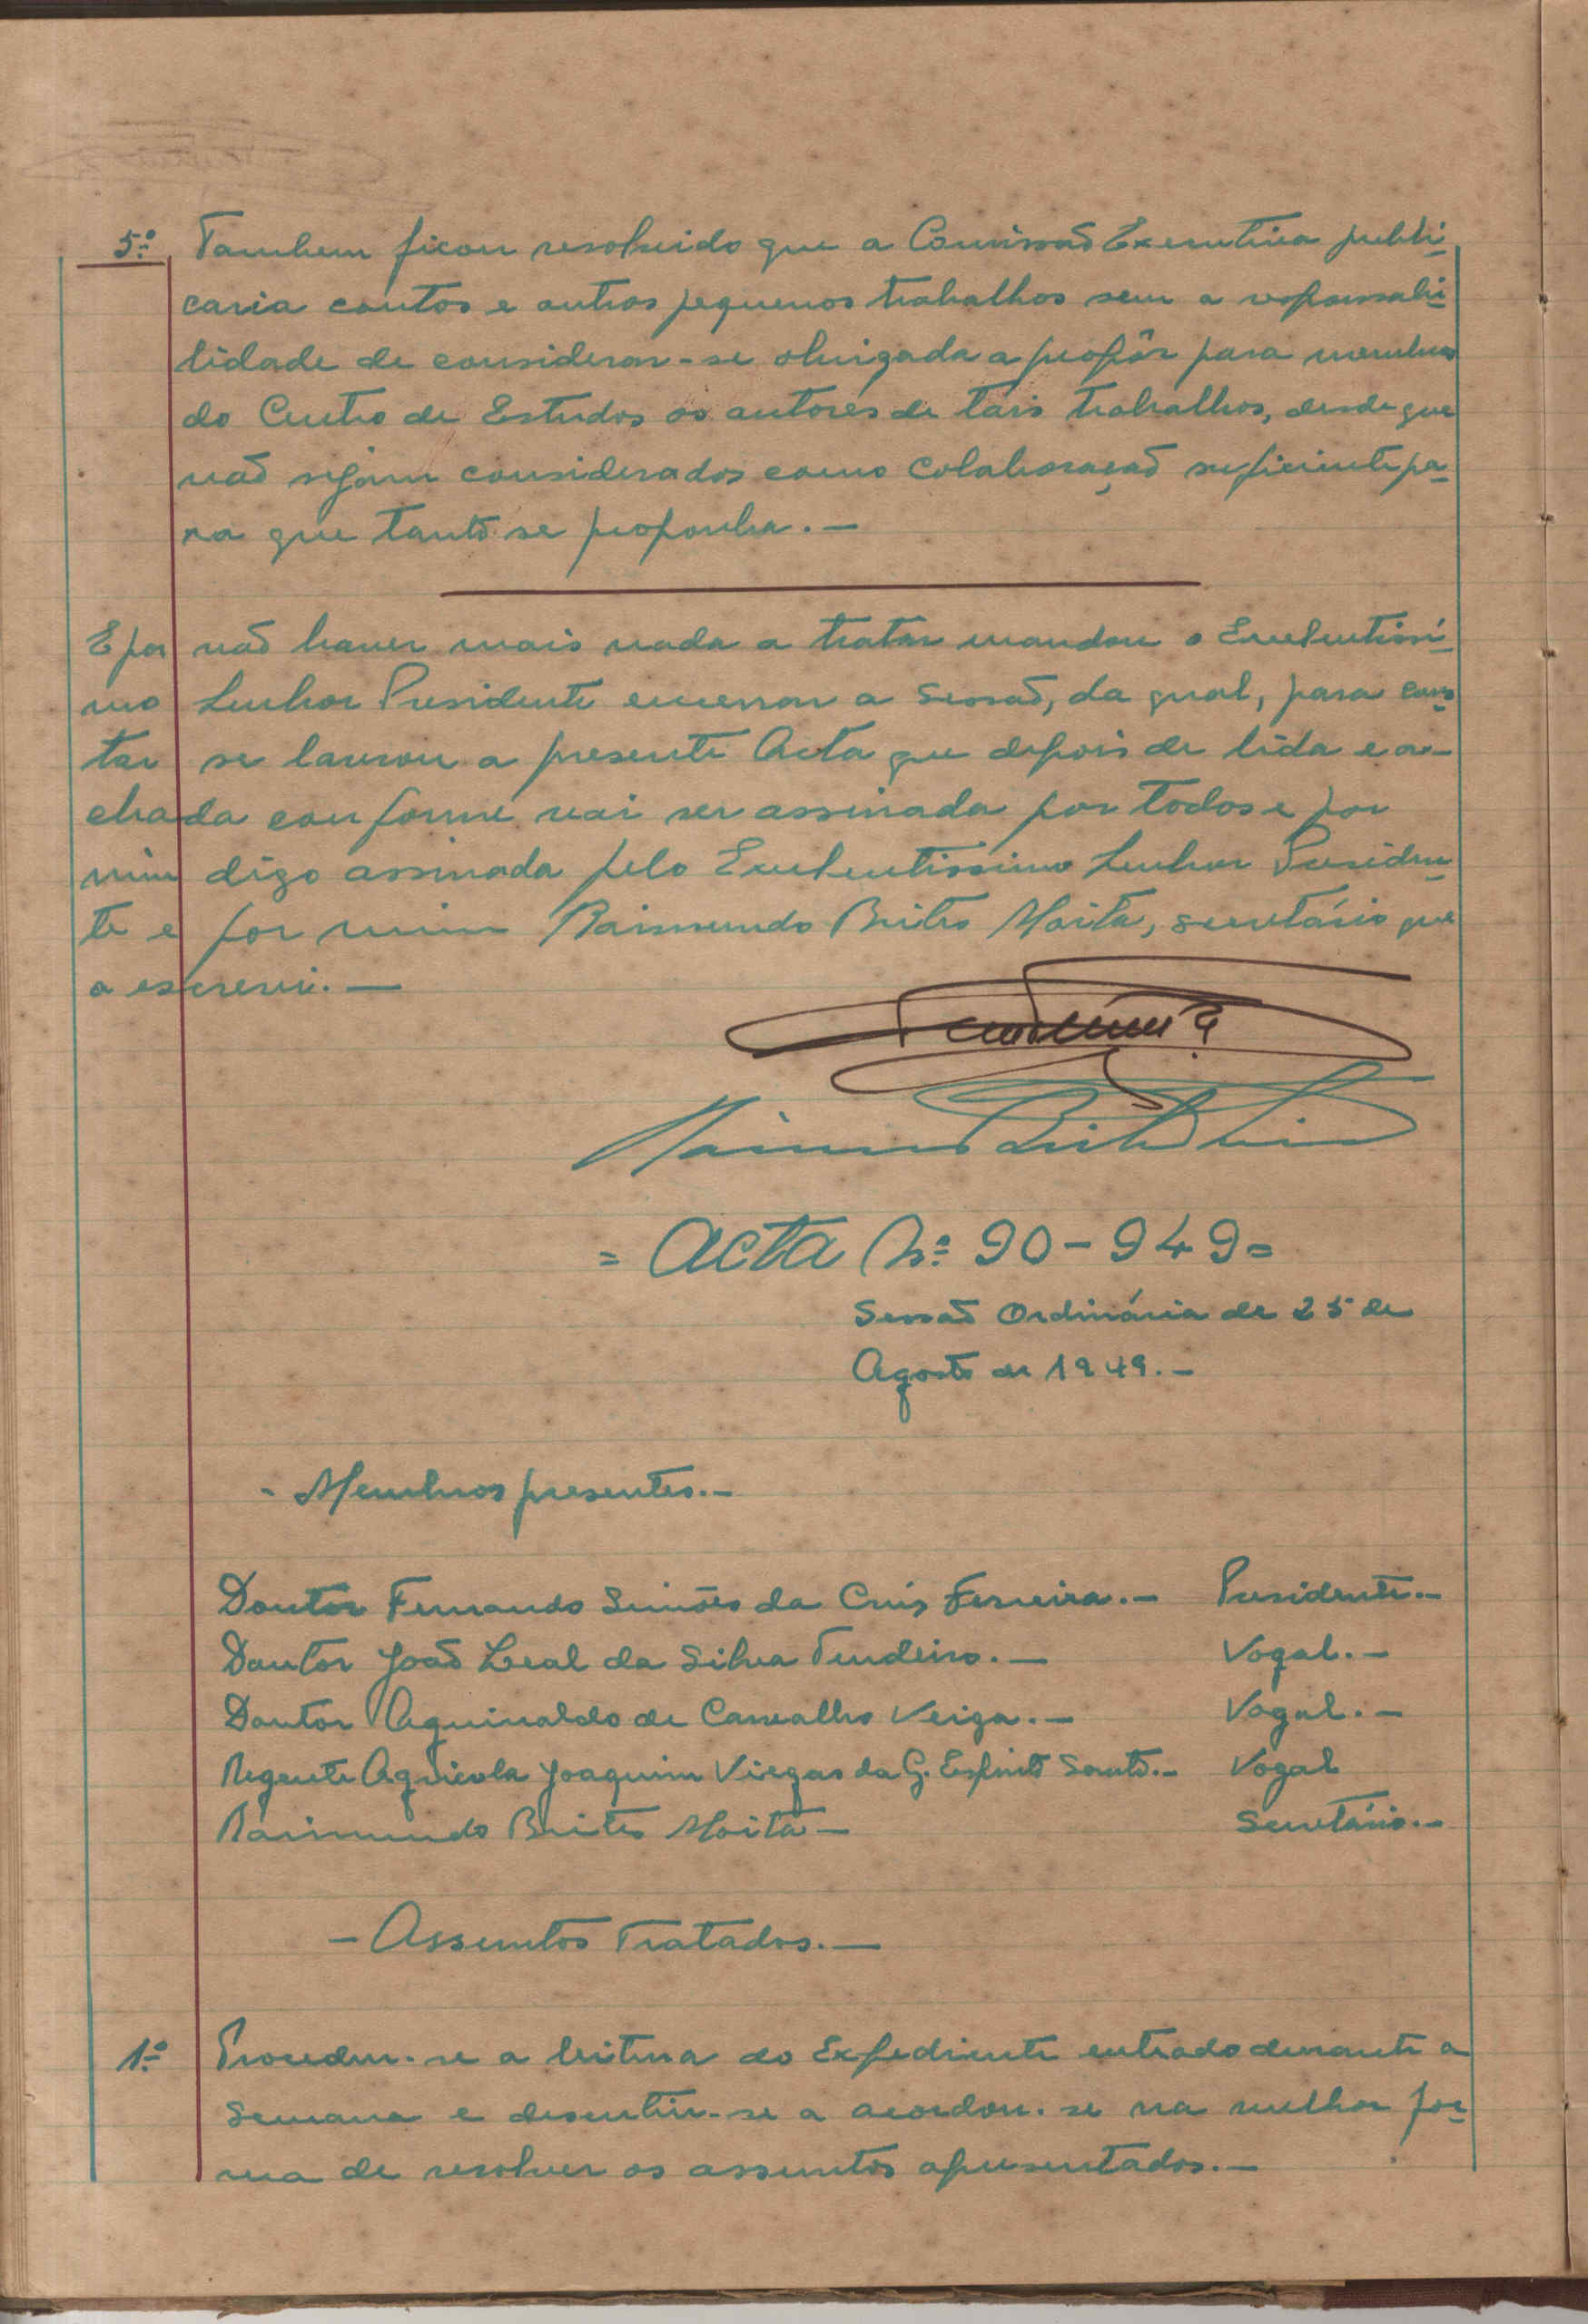 5º Tambem ficou resolvido que a Comissão Executiva publi-
caria contos e outros pequenos trabalhos sem a responsabi-
lidade de considerar-se obrigada a propôr para membros
do Centro de Estudos os autores de tais trabalhos, desde que
não sejam considerados como colaboração suficiente pa-
ra que tanto se proponha.—
E por não haver mais nada a tratar mandou o Excelentíssi-
mo Senhor Presidente encerrar a Sessão, da qual, para cons-
tar se lavrou a presente Acta que depois de lida e a-
chada conforme vai ser assinada por todos e por
mim digo assinada pelo Excelentissimo Senhor Presiden-
te e por mim Raimundo Brites Moita, secretário que
a escrevi.—
= Acta Nº 90-949=
Sessão Ordinária de 25 de
Agosto de 1949.—
- Membros presentes.—
Doutor Fernando Simões da Cruz Ferreira.— Presidente.—
Doutor João Leal da Silva Tendeiro.— Vogal.—
Doutor Aguinaldo de Carvalho Veiga.— Vogal.—
Regente Agricola Joaquim Viegas da G. Espirito Santo.— Vogal
Raimundo Brites Moita— Secretário.—
— Assuntos Tratados.—
1º Procedeu-se a leitura do Expediente entrado durante a
Semana e discutiu-se a acordou-se na melhor for-
ma de resolver os assuntos apresentados.—